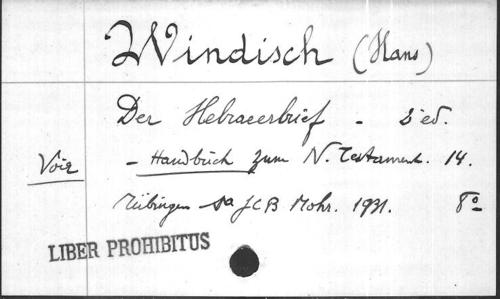 Windisch (Hans)
Der Hebraeerbrief - 2 ed.
Voir - Handbuch zum N. Testament. 14.
Tübingen JCB Mohr. 1931. 8º
LIBER PROHIBITUS